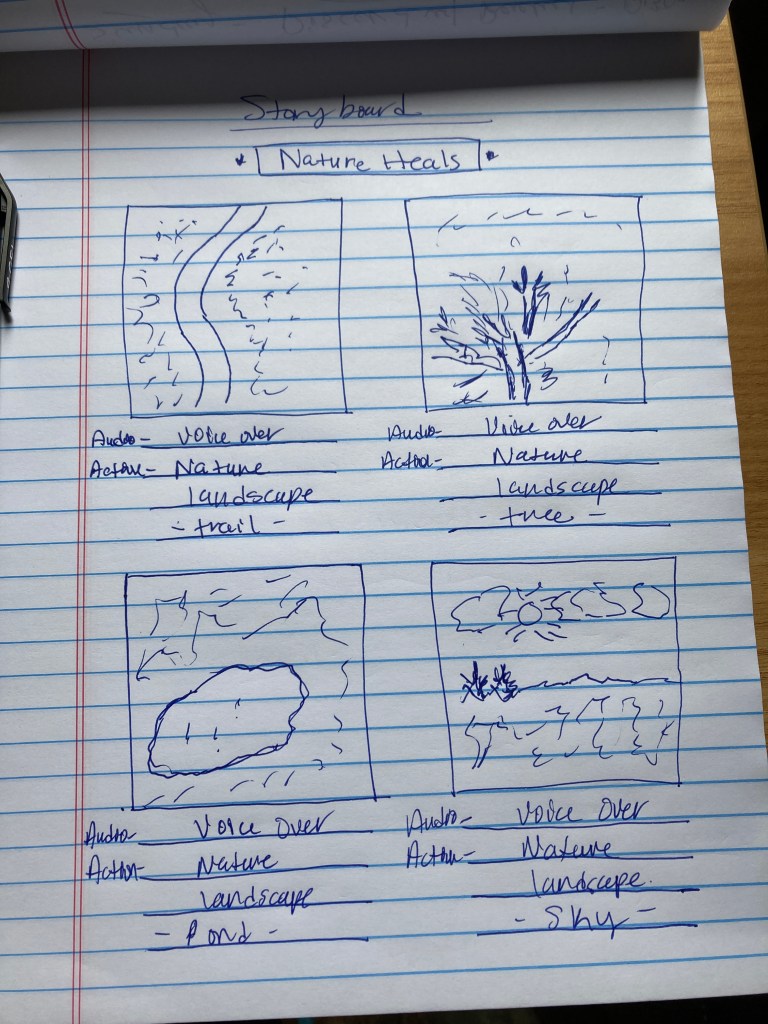 Storyboard
Nature Heals
Audio- Voice over
Action- Nature
landscape
- trail -
Audio- Voice over
Action- Nature
landscape
- tree -
Audio- Voice Over
Action- Nature
landscape
- Pond -
Audio- Voice Over
Action- Nature
landscape.
- Sky -